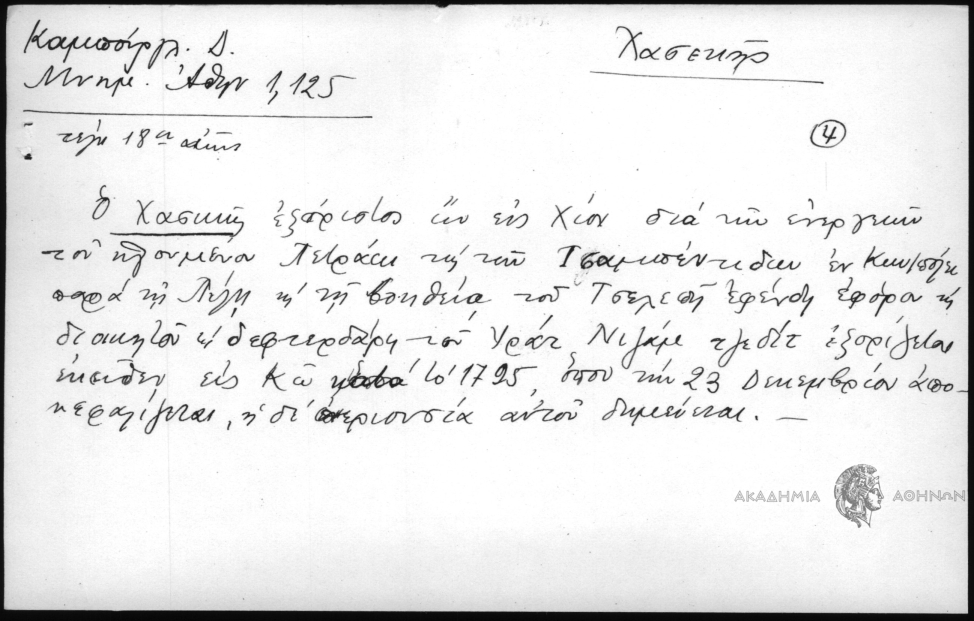 Καμπούρογλ. Δ.
Μνημ. Ἀθην 1, 125
Χασεκῆς
τέλη 18ου αἰῶνος
4
Ὁ Χασεκῆς ἐξόριστος ὢν εἰς Χίον διὰ τῶν ἐνεργειῶν
τοῦ ἡγουμένου Πετράκη καὶ τῶν ἐν
παρὰ τῇ Πύλῃ, καὶ τῇ βοηθείᾳ τοῦ Τσελεπῆ ἐφένδη ἐφόρου καὶ
διοικητοῦ καὶ δεφτερδάρη τοῦ Ἰράτ Νιζάμ τζεδίτ ἐξορίζεται
ἐκεῖθεν εἰς Κῶ τό 1795, ὅπου τὴν 23 Δεκεμβρίου ἀπο-
κεφαλίζεται, ἡ δὲ περιουσία αὐτοῦ δημεύεται. —
ΑΚΑΔΗΜΙΑ ΑΘΗΝΩΝ